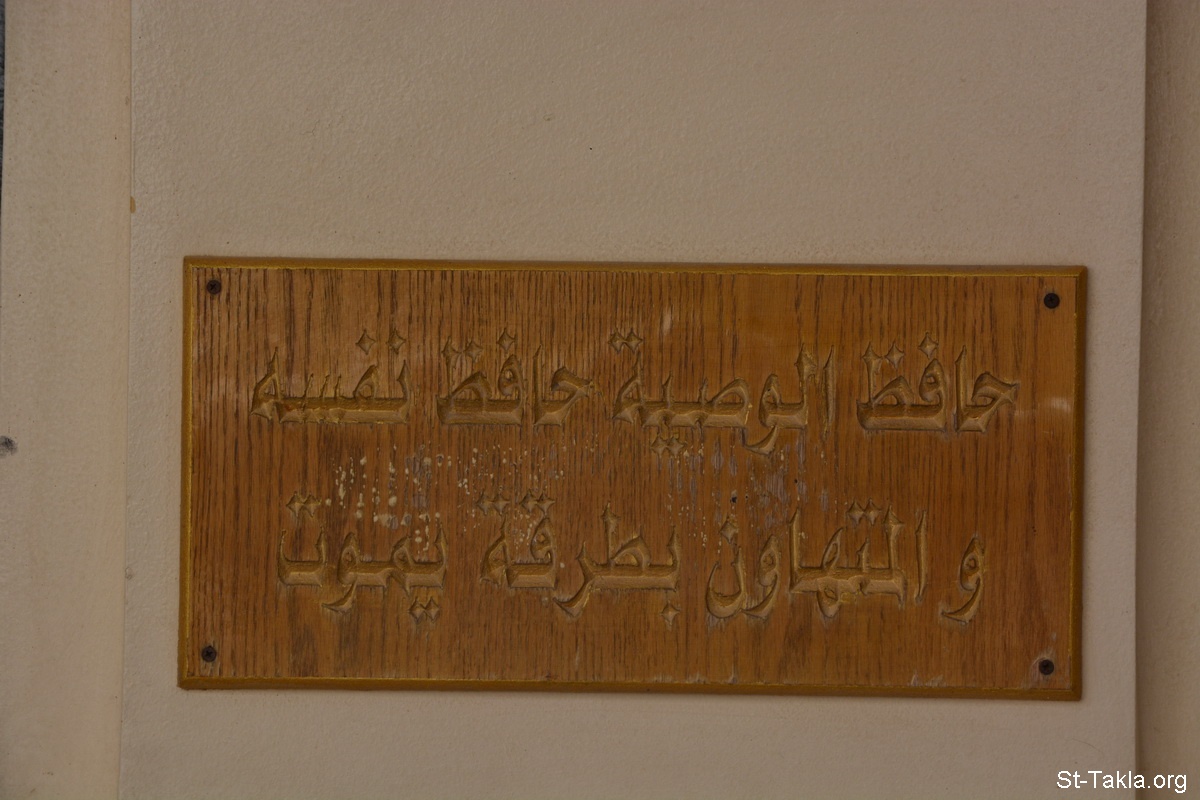 حافظ الوصية حافظ نفسه
و المتهاون بطرقة يموت
St-Takla.org